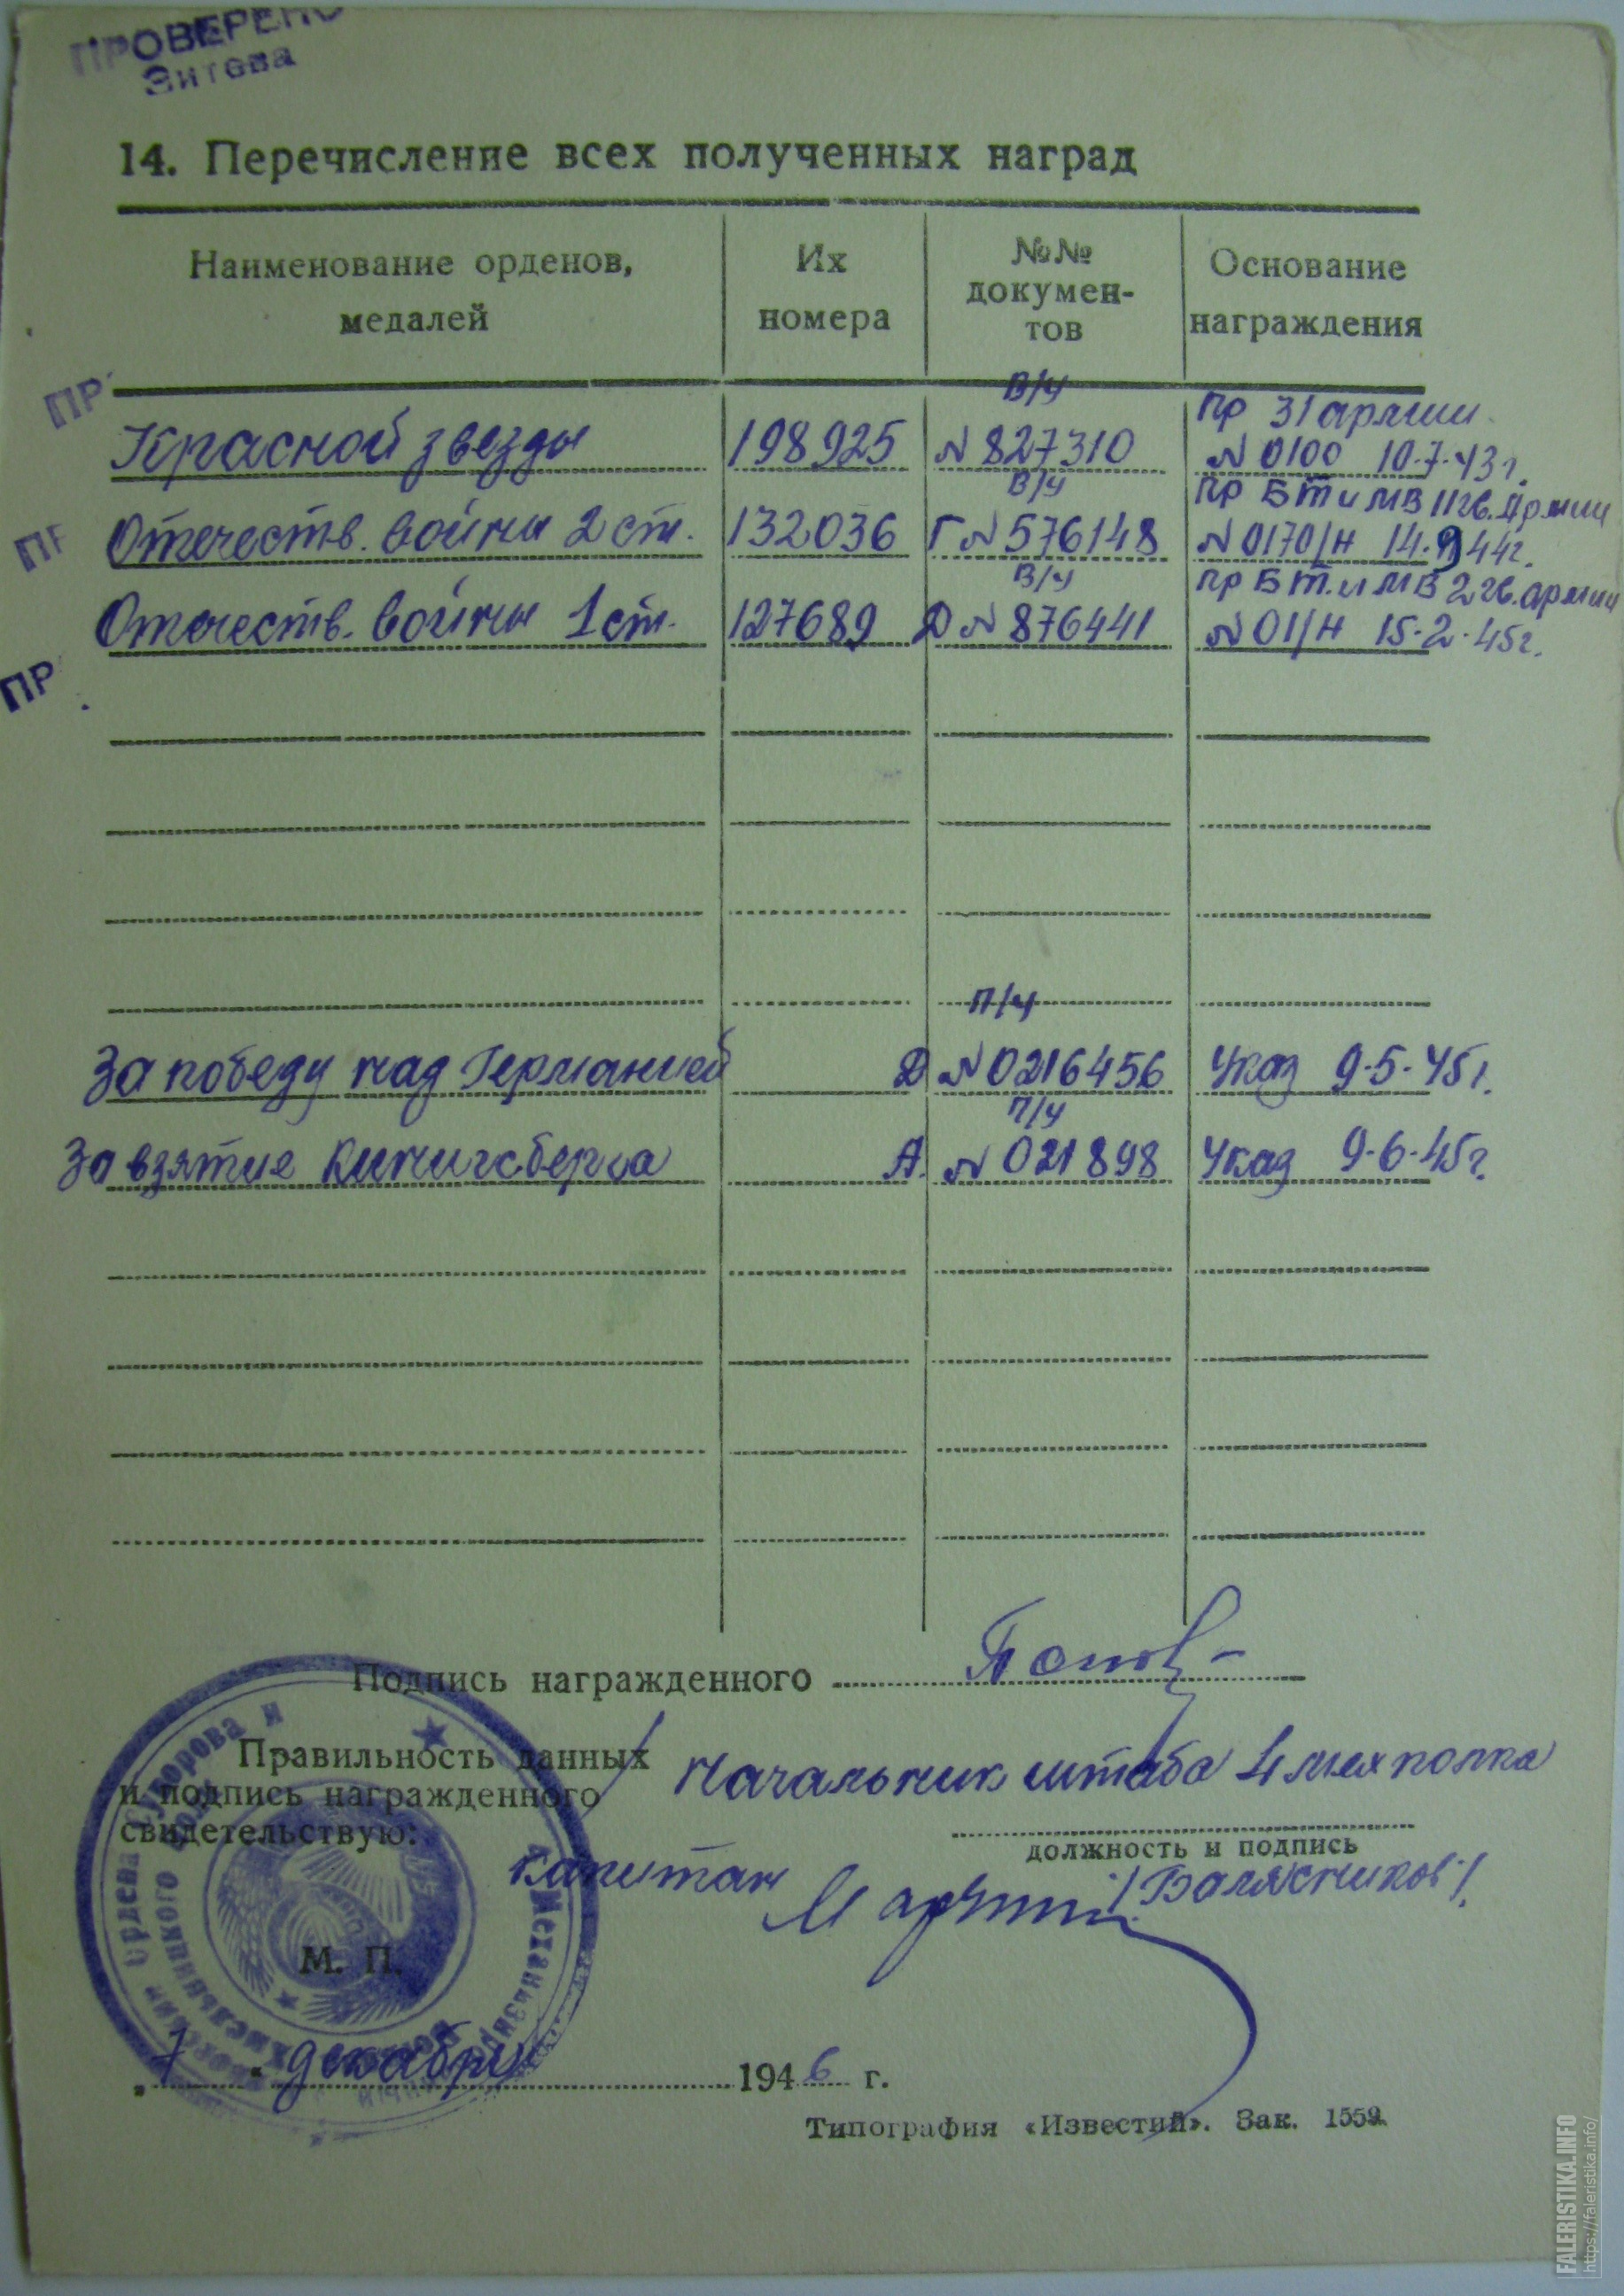 ПРОВЕРЕНО
Зитева
14. Перечисление всех полученных наград
Наименование орденов, медалей
Их номера
№№ докумен-
тов
Основание награждения
ПР
В/ч
Пр 31 армии
Красной звезды 198925 № 827310 № 0100 10.7.43г.
ПР
В/ч
Пр БТ и МВ 11 гв. Армии
Отечеств. войны 2 ст. 132036 Г № 576148 № 0170/н 14.9 44г.
В/ч
Пр БТ. и МВ 2 гв. армии
Отечеств. войны 1 ст. 127689 Д № 876441 № 01/н 15.2.45г.
ПР
П/ч
За победу над Германией Д № 0216456 Указ 9.5.45г.
П/ч
За взятие Кинигсберга А. № 021898 Указ 9.6.45г.
Подпись награжденного
Правильность данных
и подпись награжденного
свидетельствую:
Начальник штаба 4 мех полка
должность и подпись
капитан /Балясников/
М. П.
7 декабря 1946 г.
Типография «Известий». Зак. 1559.
FALERISTIKA.INFO
https://faleristika.info/